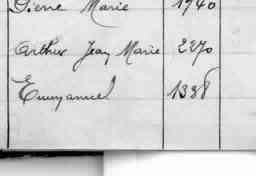 Pierre Marie 1940
Arthur Jean Marie 2270
Emmanuel 1338